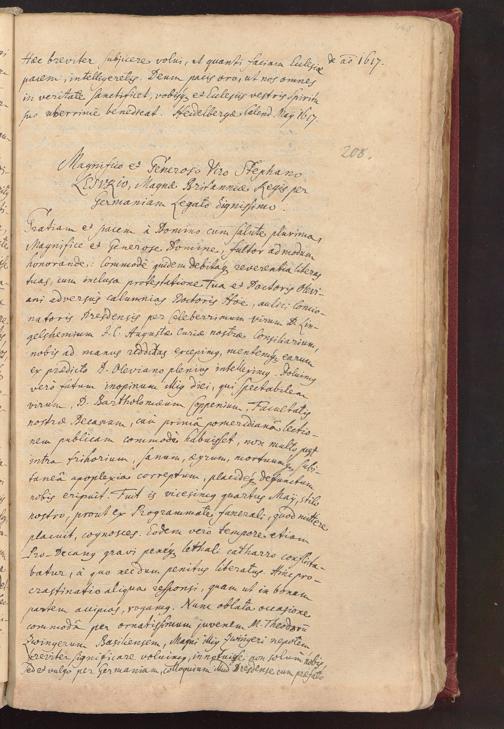 Hæc breviter subjicere volui, ut quanti faciam Ecclesiæ de aõ 1617.
pacem, intelligeretis. Deum pacis oro, ut nos omnes
in veritate sanctificet, vobisq et Ecclesiis vestris Spiritu
suo uberrime benedicat. Heidelbergæ Calend. Maij 1617.
208.
Magnifico et Generoso Viro Stephano
LESVRIO, Magnæ Britanniæ Regis per
Germaniam Legato dignissimo.
Gratiam et pacem à Domino cum salute plurima,
Magnifice et Generose Domine, fautor admodum
honorande: Commodè quidem debitaq reverentia literas
tuas, cum inclusa protestatione Tua et Doctoris Olevi-
ani adversus calumnias Doctoris Hoe, aulici Concio-
natoris Dresdensis per Celeberrimum virum D. Lin-
gelshemium J.C. Augustæ Curiæ nostræ Consiliarium,
nobis ad manus redditas excepimq, mentemq earum
ex prædicto D. Oleviano plenius intelleximq. Doluimq
verò fatum inopinum illiq diei, qui spectabilem
virum, D. Bartholomæum Coppenium, Facultatis
nostræ Decanum, cum primâ pomeridianâ lectio-
nem publicam commodè habuisset, non multo post
intra trihorium, sanum, ægrum, mortuumq, subi-
tanea apoplexia correptum, placideq defunctum
nobis eripuit. Fuit is vicesimq quartus Maij, stilo
nostro, prout ex Programmate funerali, quod mittere
placuit, cognosces. Eodem verò tempore etiam
Pro-Decanq gravi peneq lethali catharro conflicta-
batur, à quo necdum penitus liberatus. Hinc pro-
crastinatio aliqua responsi, quam ut in bonam
partem accipias, rogamq. Nunc oblata occasione
commodâ per ornatissimum juvenem M. Theodorum
Zwingerum Basiliensem, Magni illiq Zwingeri nepotem
breviter significare voluimq, innotuisse non solum nobis,
sed et vulgo per Germaniam, colloquium illud Dresdense cum præfato